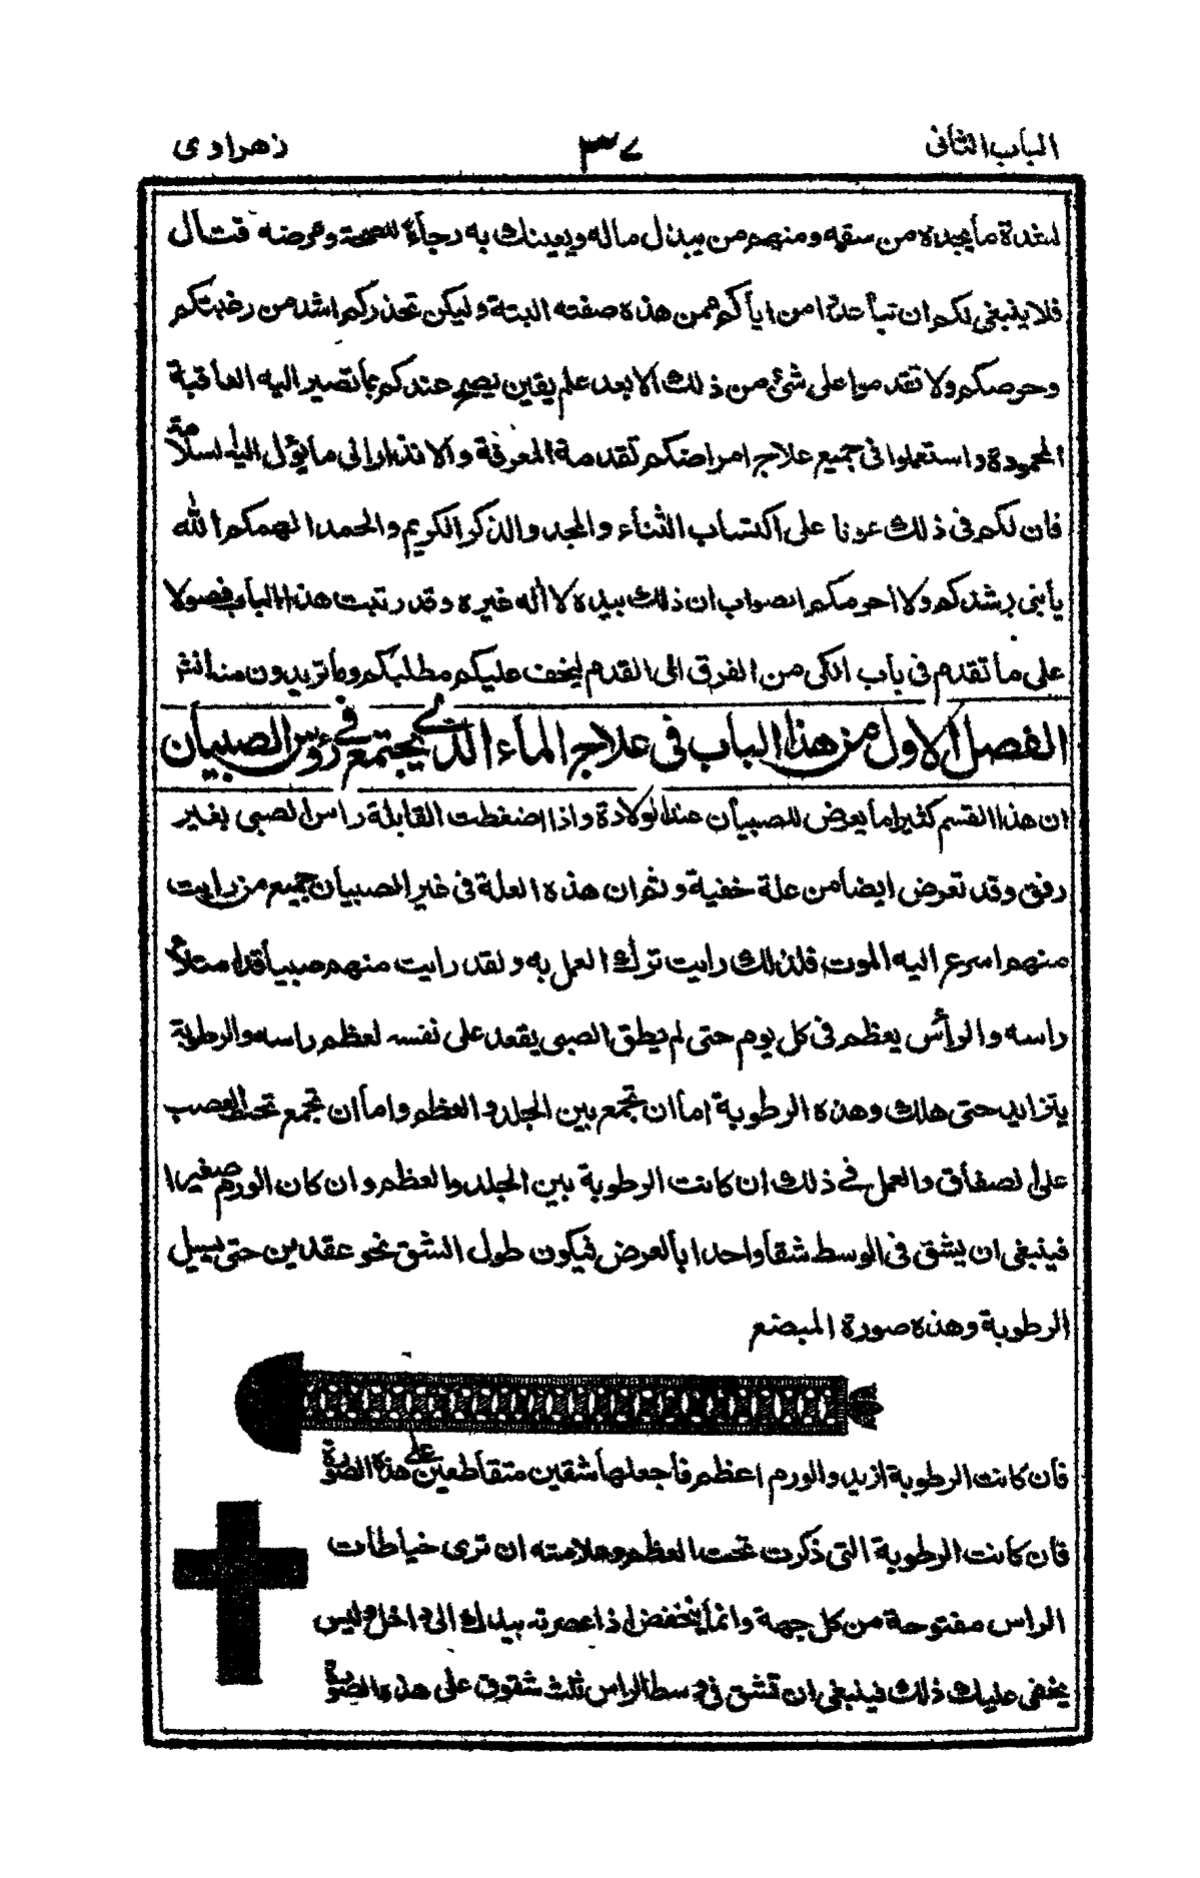 الباب الثانى ٣٧ زهراوى
لشدة ما يجده من سقمه ومنهم من يبذل ماله ويعينك به رجاء للصحة ومرضه قتال
فلا ينبغى لكم ان تباحدوا من اياكم ممن هذه صفته البتة وليكن تحذركم اشد من رغبتكم
وحرصكم ولا تقدموا على شئ من ذلك الا بعد علم يقين يصح عندكم بما تصير اليه العاقبة
المحمودة واستعملوا فى جميع علاج امراضكم تقدمة المعرفة والانذار الى ما يؤل اليه السلامة
فان لكم فى ذلك عونا على اكتساب الثناء والمجد والذكر الكريم والحمد الهمكم الله
يا بنى رشدكم ولا احرمكم الصواب ان ذلك بيده لا اله غيره وقد رتبت هذا الباب فصولا
على ما تقدم فى باب الكى من الفرق الى القدم ليخف عليكم مطلبكم وما تريدون منه انش
الفصل الاول من هذا الباب فى علاج الماء الذى يجتمع فى رؤس الصبيان
ان هذا القسم كثيرا ما يعرض للصبيان عند الولادة واذا ضغطت القابلة راس الصبى بغير
رفق وقد تعرض ايضا من علة خفية وثم ان هذه العلة فى غير الصبيان جميع من رايت
منهم اسرع اليه الموت فلذلك رايت ترك العمل به ولقد رايت منهم صبيا قد امتلأ
راسه والرأس يعظم فى كل يوم حتى لم يطق الصبى يقعد على نفسه لعظم راسه والرطوبة
يتزايد حتى هلك وهذه الرطوبة اما ان تجمع بين الجلد والعظم واما ان تجمع تحت العصب
على الصفاق والعمل فى ذلك ان كانت الرطوبة بين الجلد والعظم وان كان الورم صغيرا
فينبغى ان يشق فى الوسط شقا واحدا بالعرض فيكون طول الشق نحو عقدين حتى يسيل
الرطوبة وهذه صورة المبضع
فان كانت الرطوبة ازيد والورم اعظم فاجعلها شقين متقاطعين على هذه الصورة
فان كانت الرطوبة التى ذكرت تحت العظم وعلامته ان ترى خياطات
الراس مفتوحة من كل جهة وانما ينخفض اذا عصرته بيدك الى داخل وليس
يخفى عليك ذلك فينبغى ان تشق فى وسط الراس ثلث شقوق على هذه الصورة